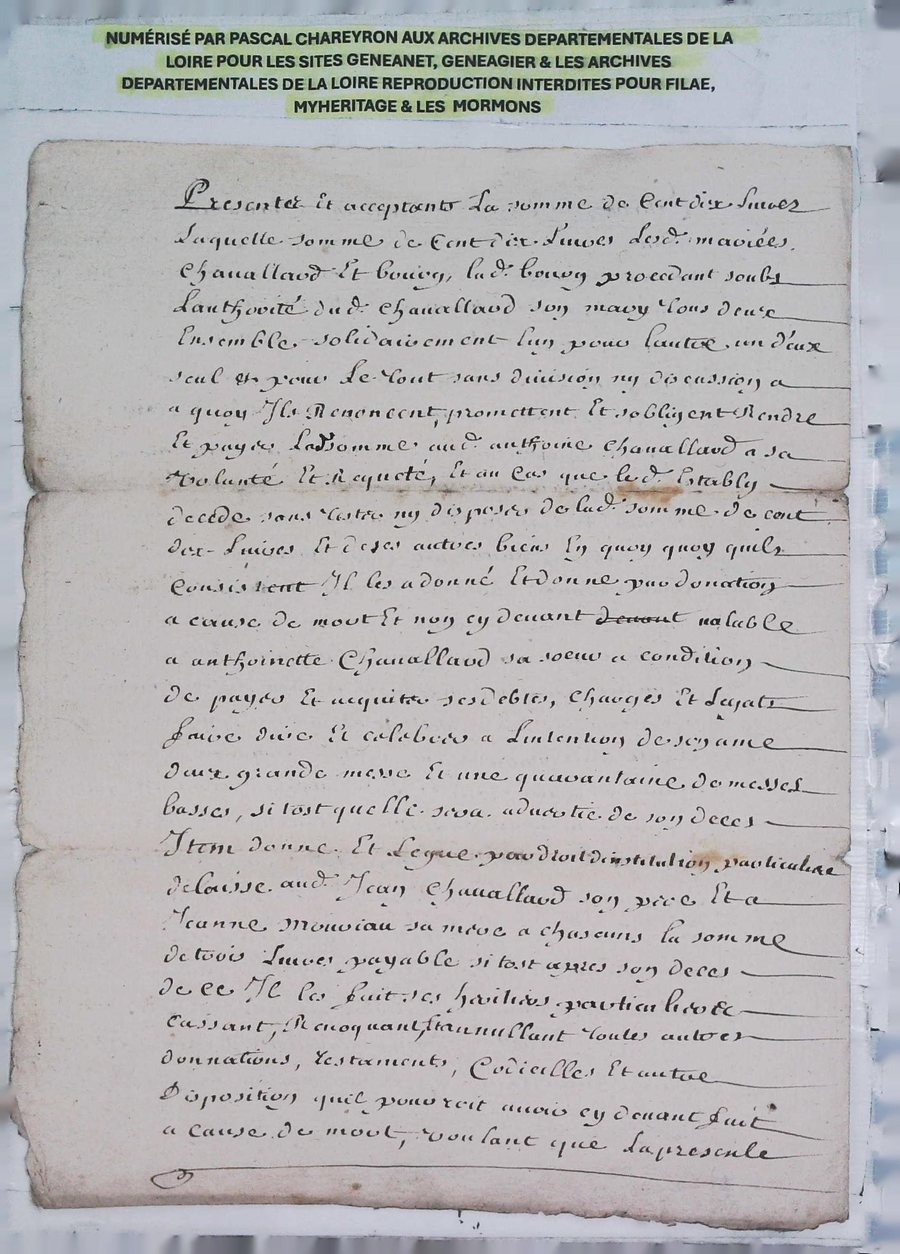 NUMÉRISÉ PAR PASCAL CHAREYRON AUX ARCHIVES DEPARTEMENTALES DE LA
LOIRE POUR LES SITES GENEANET, GENEAGIER & LES ARCHIVES
DEPARTEMENTALES DE LA LOIRE REPRODUCTION INTERDITES POUR FILAE,
MYHERITAGE & LES MORMONS
Presentes Et acceptants La somme de Cent dix Livres
Laquelle somme de Cent dix Livres Lesd. mariées
Chavallard Et bouvy, lad. bouvy procedant soubs
Lauthorité dud. Chavallard son mary tous deux
Ensemble solidairement lun pour lautre un deux
seul et pour Le tout sans division ny discussion a
a quoy Ils Renoncent, promettent Et sobligent Rendre
Et payer Lad somme aud. anthoine Chavallard a sa
volunté Et Requeté, Et au Cas que led. Estably
decede sans tester ny disposer de lad. somme de cent
dix Livres Et de ses autres biens En quoy quoy quils
Consistent Il les a donné Et donne par donation
a cause de mort Et non cy devant devant valable
a anthoinette Chavallard sa soeur a condition
de payer Et acquiter ses debtes, Charges Et Legats
faire dire Et celebrer a Lintention de son ame
deux grande messe Et une quarantaine de messes
basses, si tost quelle sera advertie de son deces
Item donne Et Legue par droit dinstitution particuliere
delaisse aud. Jean Chavallard son pere Et a
Jeanne mouriau sa mere a chascuns la somme
de trois Livres payable si tost apres son deces
de ce Il les fait ses heritiers particuliere
Cassant, Revoquant, Et annullant toutes autres
donnations, testaments, Codicilles Et autre
Disposition quil pourroit avoir cy devant fait
a cause de mort, voulant que La presente